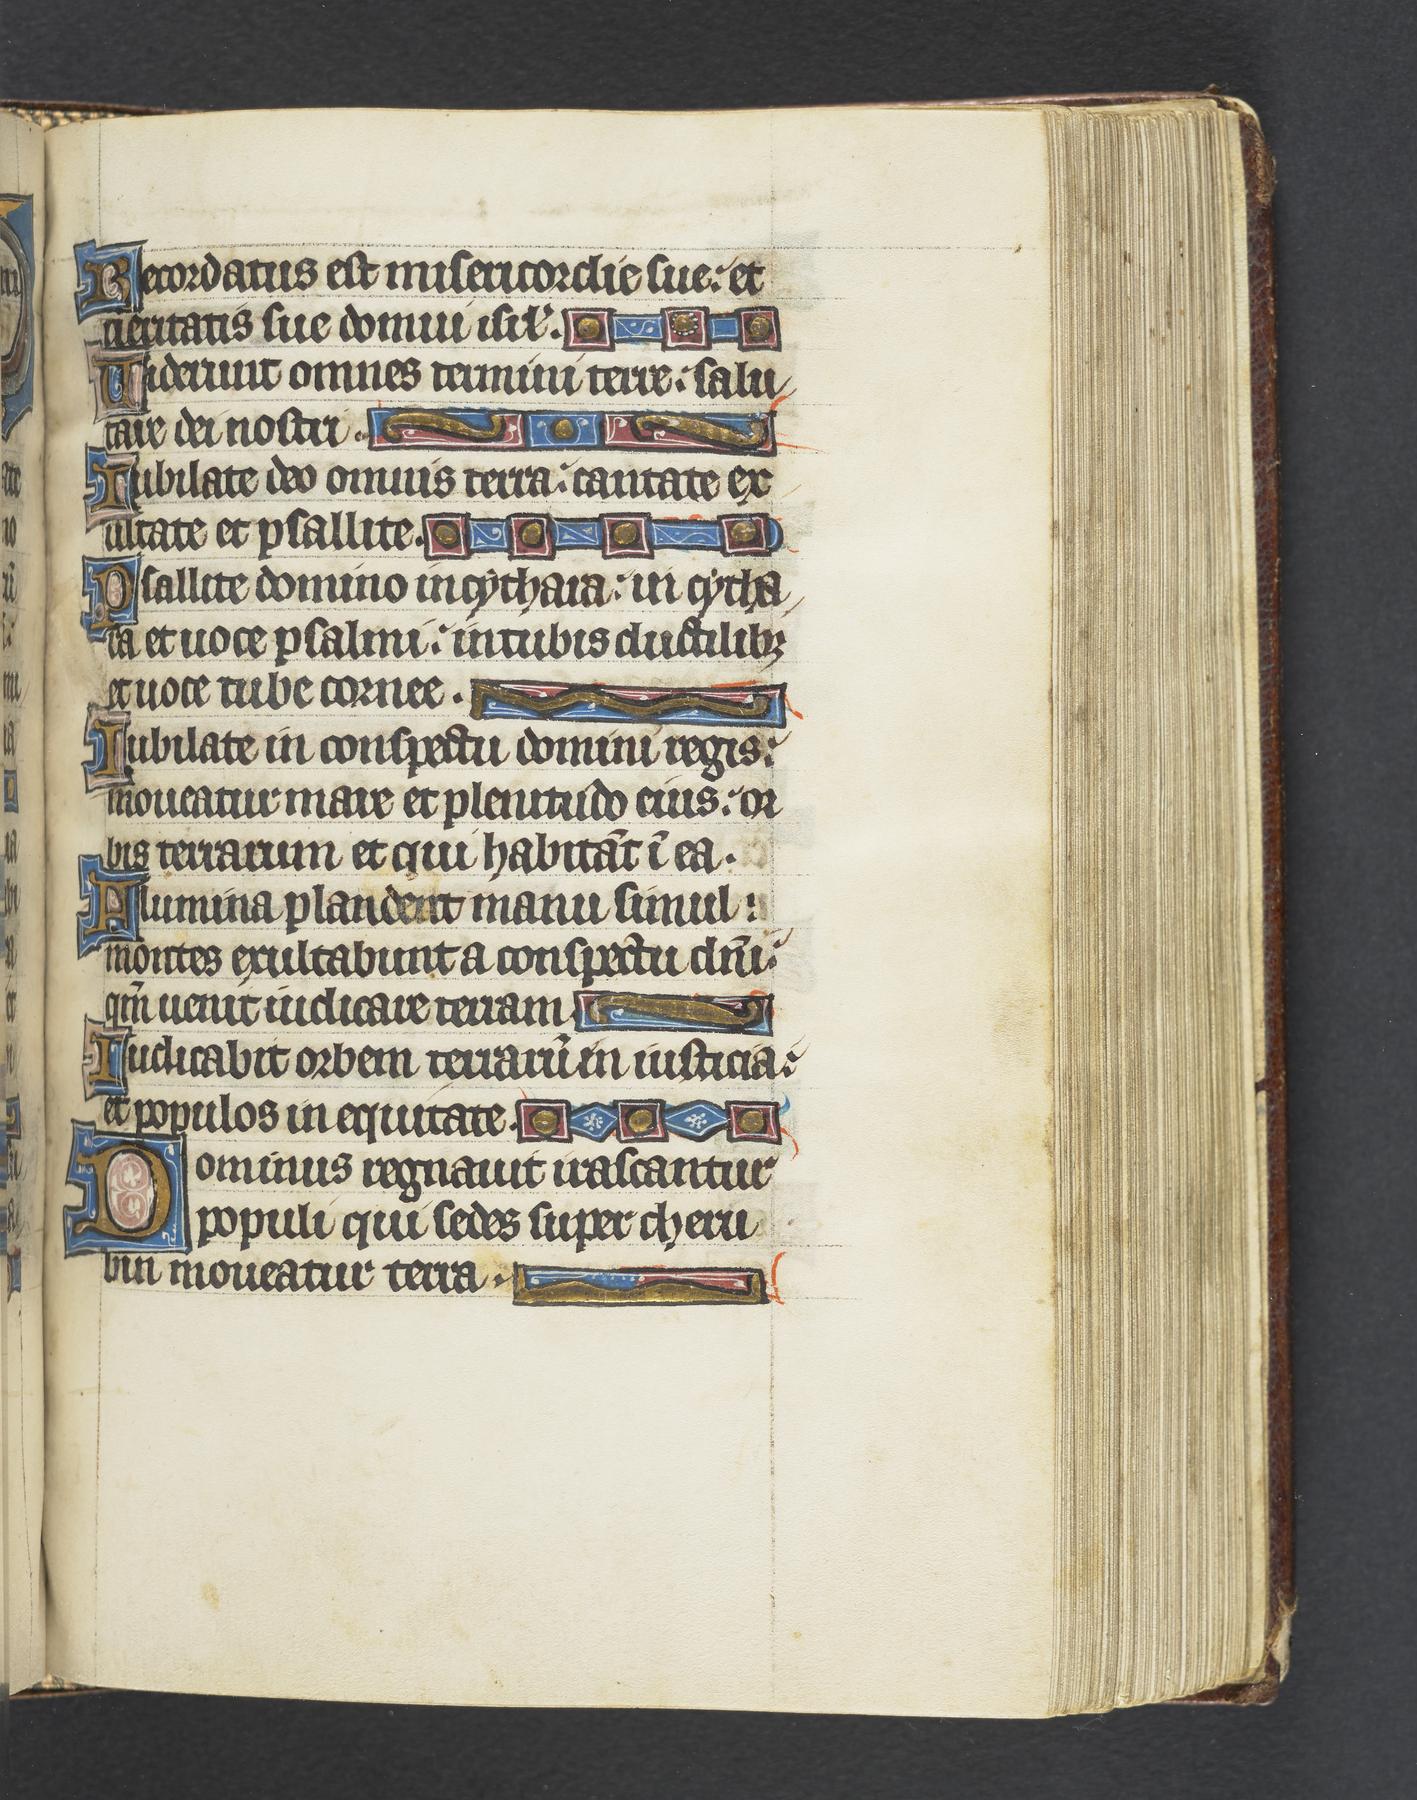 Recordatus est misericordie sue: et
ueritatis sue domui isrł.
Uiderunt omnes termini terre: salu
tare dei nostri.
Iubilate deo omnis terra: cantate ex
ultate et psallite.
Psallite domino in cythara: in cytha
ra et uoce psalmi: in tubis ductilibꝫ
et uoce tube cornee.
Iubilate in conspectu domini regis:
moueatur mare et plenitudo eius: or
bis terrarum et qui habitāt ī ea.
Flumina plaudent manu simul:
montes exultabunt a conspectu dn̄i:
qm̄ uenit iudicare terram
Iudicabit orbem terrarū in iusticia:
et populos in equitate.
Dominus regnauit irascantur
populi qui sedes super cheru
bin moueatur terra.